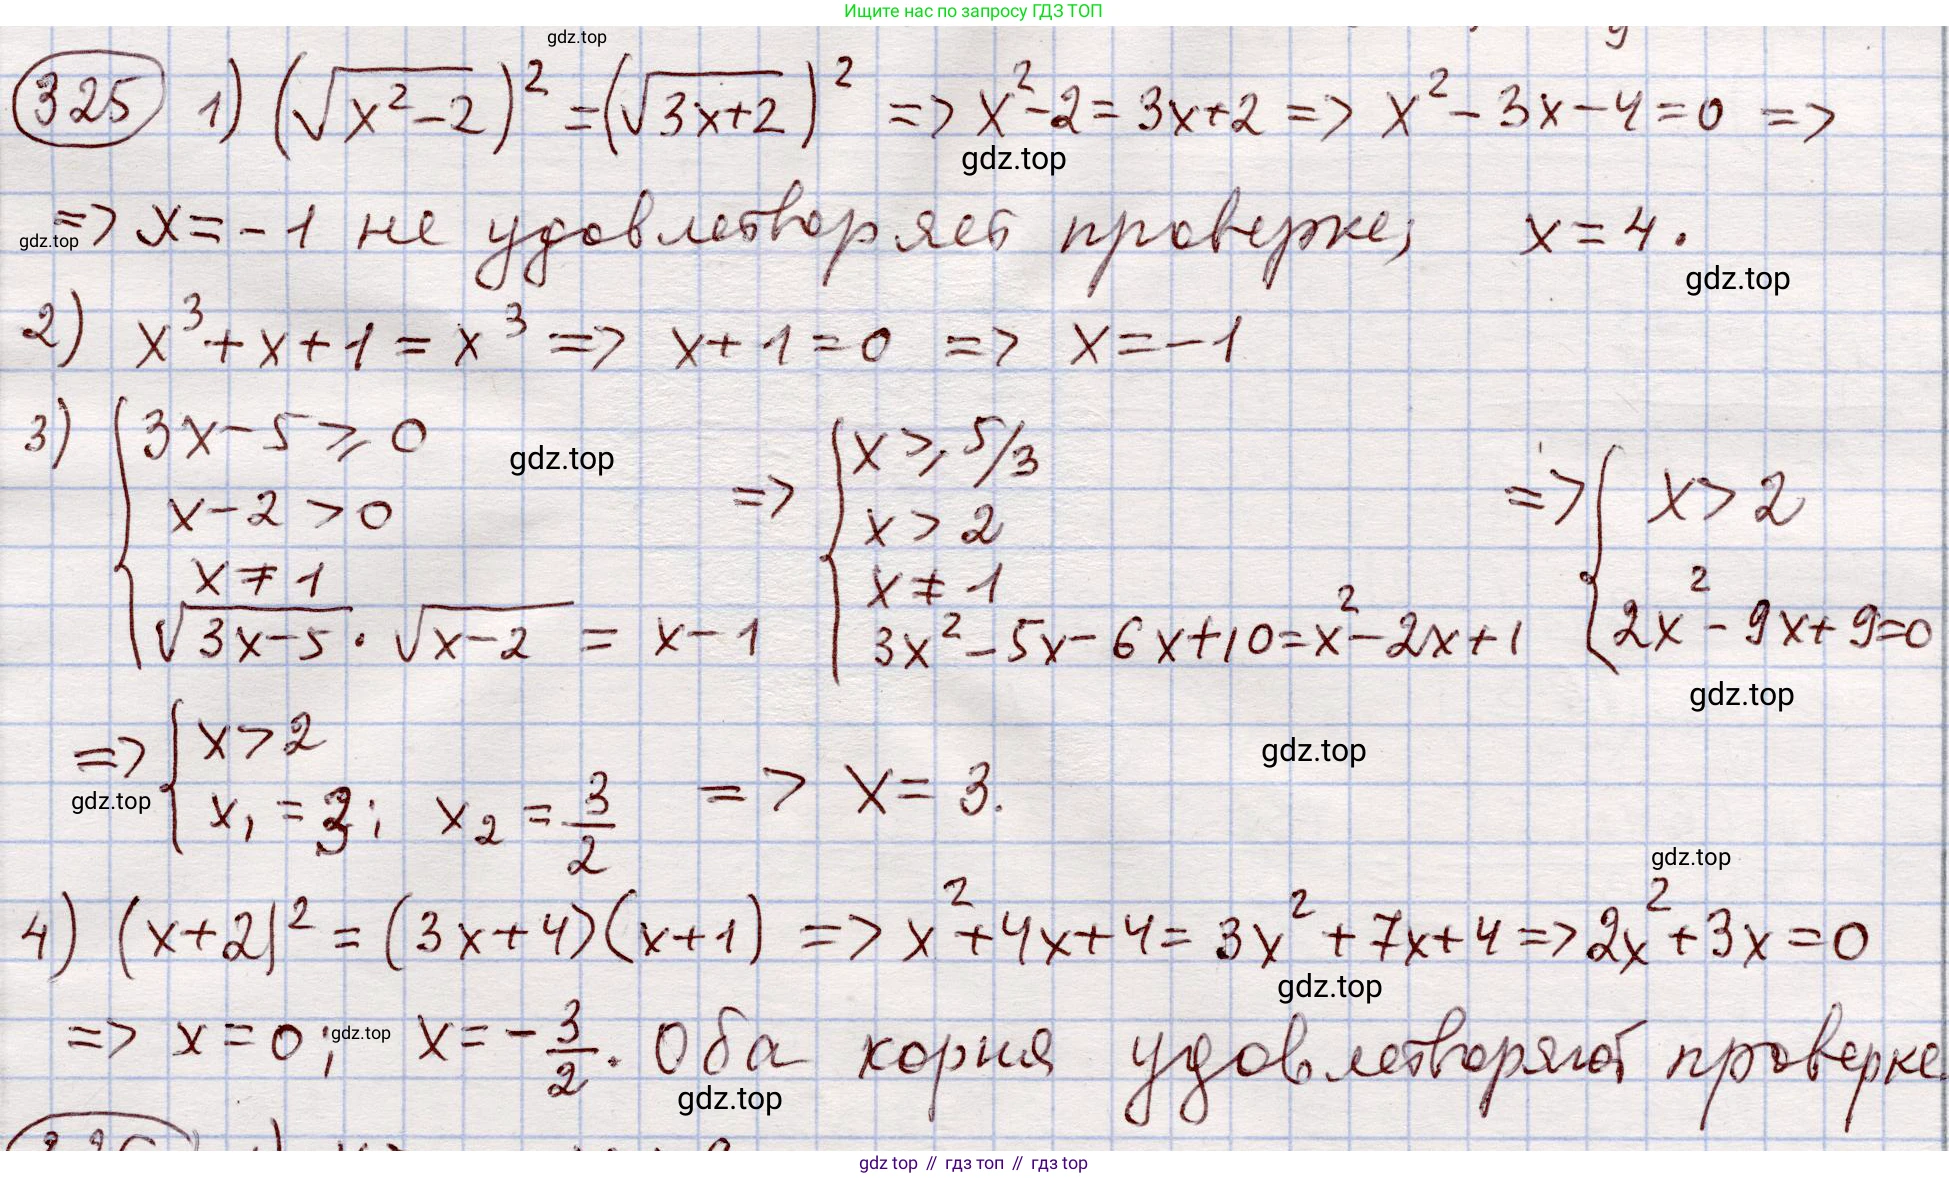 Ищите нас по запросу ГДЗ ТОП
gdz.top
325 1) (√(x²-2))² = (√(3x+2))² => x²-2=3x+2 => x²-3x-4=0 =>
gdz.top
=> x=-1 не удовлетворяет проверке; x=4.
gdz.top
gdz.top
2) x³+x+1=x³ => x+1=0 => x=-1
3) { 3x-5⩾0
x-2>0
x≠1
√(3x-5) · √(x-2) = x-1
gdz.top
=> { x⩾5/3
x>2
x≠1
3x²-5x-6x+10=x²-2x+1
=> { x>2
2x²-9x+9=0
gdz.top
=> { x>2
x₁=3; x₂=3/2
=> x=3.
gdz.top
gdz.top
gdz.top
4) (x+2)²=(3x+4)(x+1) => x²+4x+4=3x²+7x+4 => 2x²+3x=0
gdz.top
=> x=0; x=-3/2. Оба корня удовлетворяют проверке.
gdz.top
gdz.top
gdz top // гдз топ // гдз top